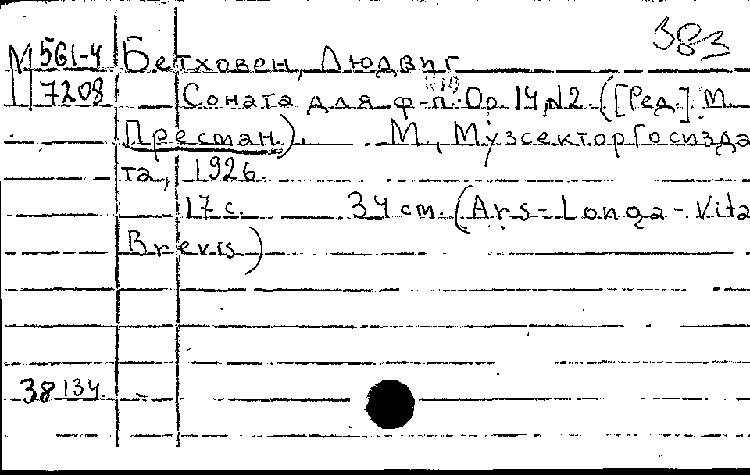 383
М 561-4 Бетховен, Людвиг
7208 Соната для ф-п. Op. 14 №2 ([Ред.] М.
Пресман). М., Музсектор Госизда
та, 1926.
17 с. 34 см. (Ars-Longa-Vita
Brevis)
38134